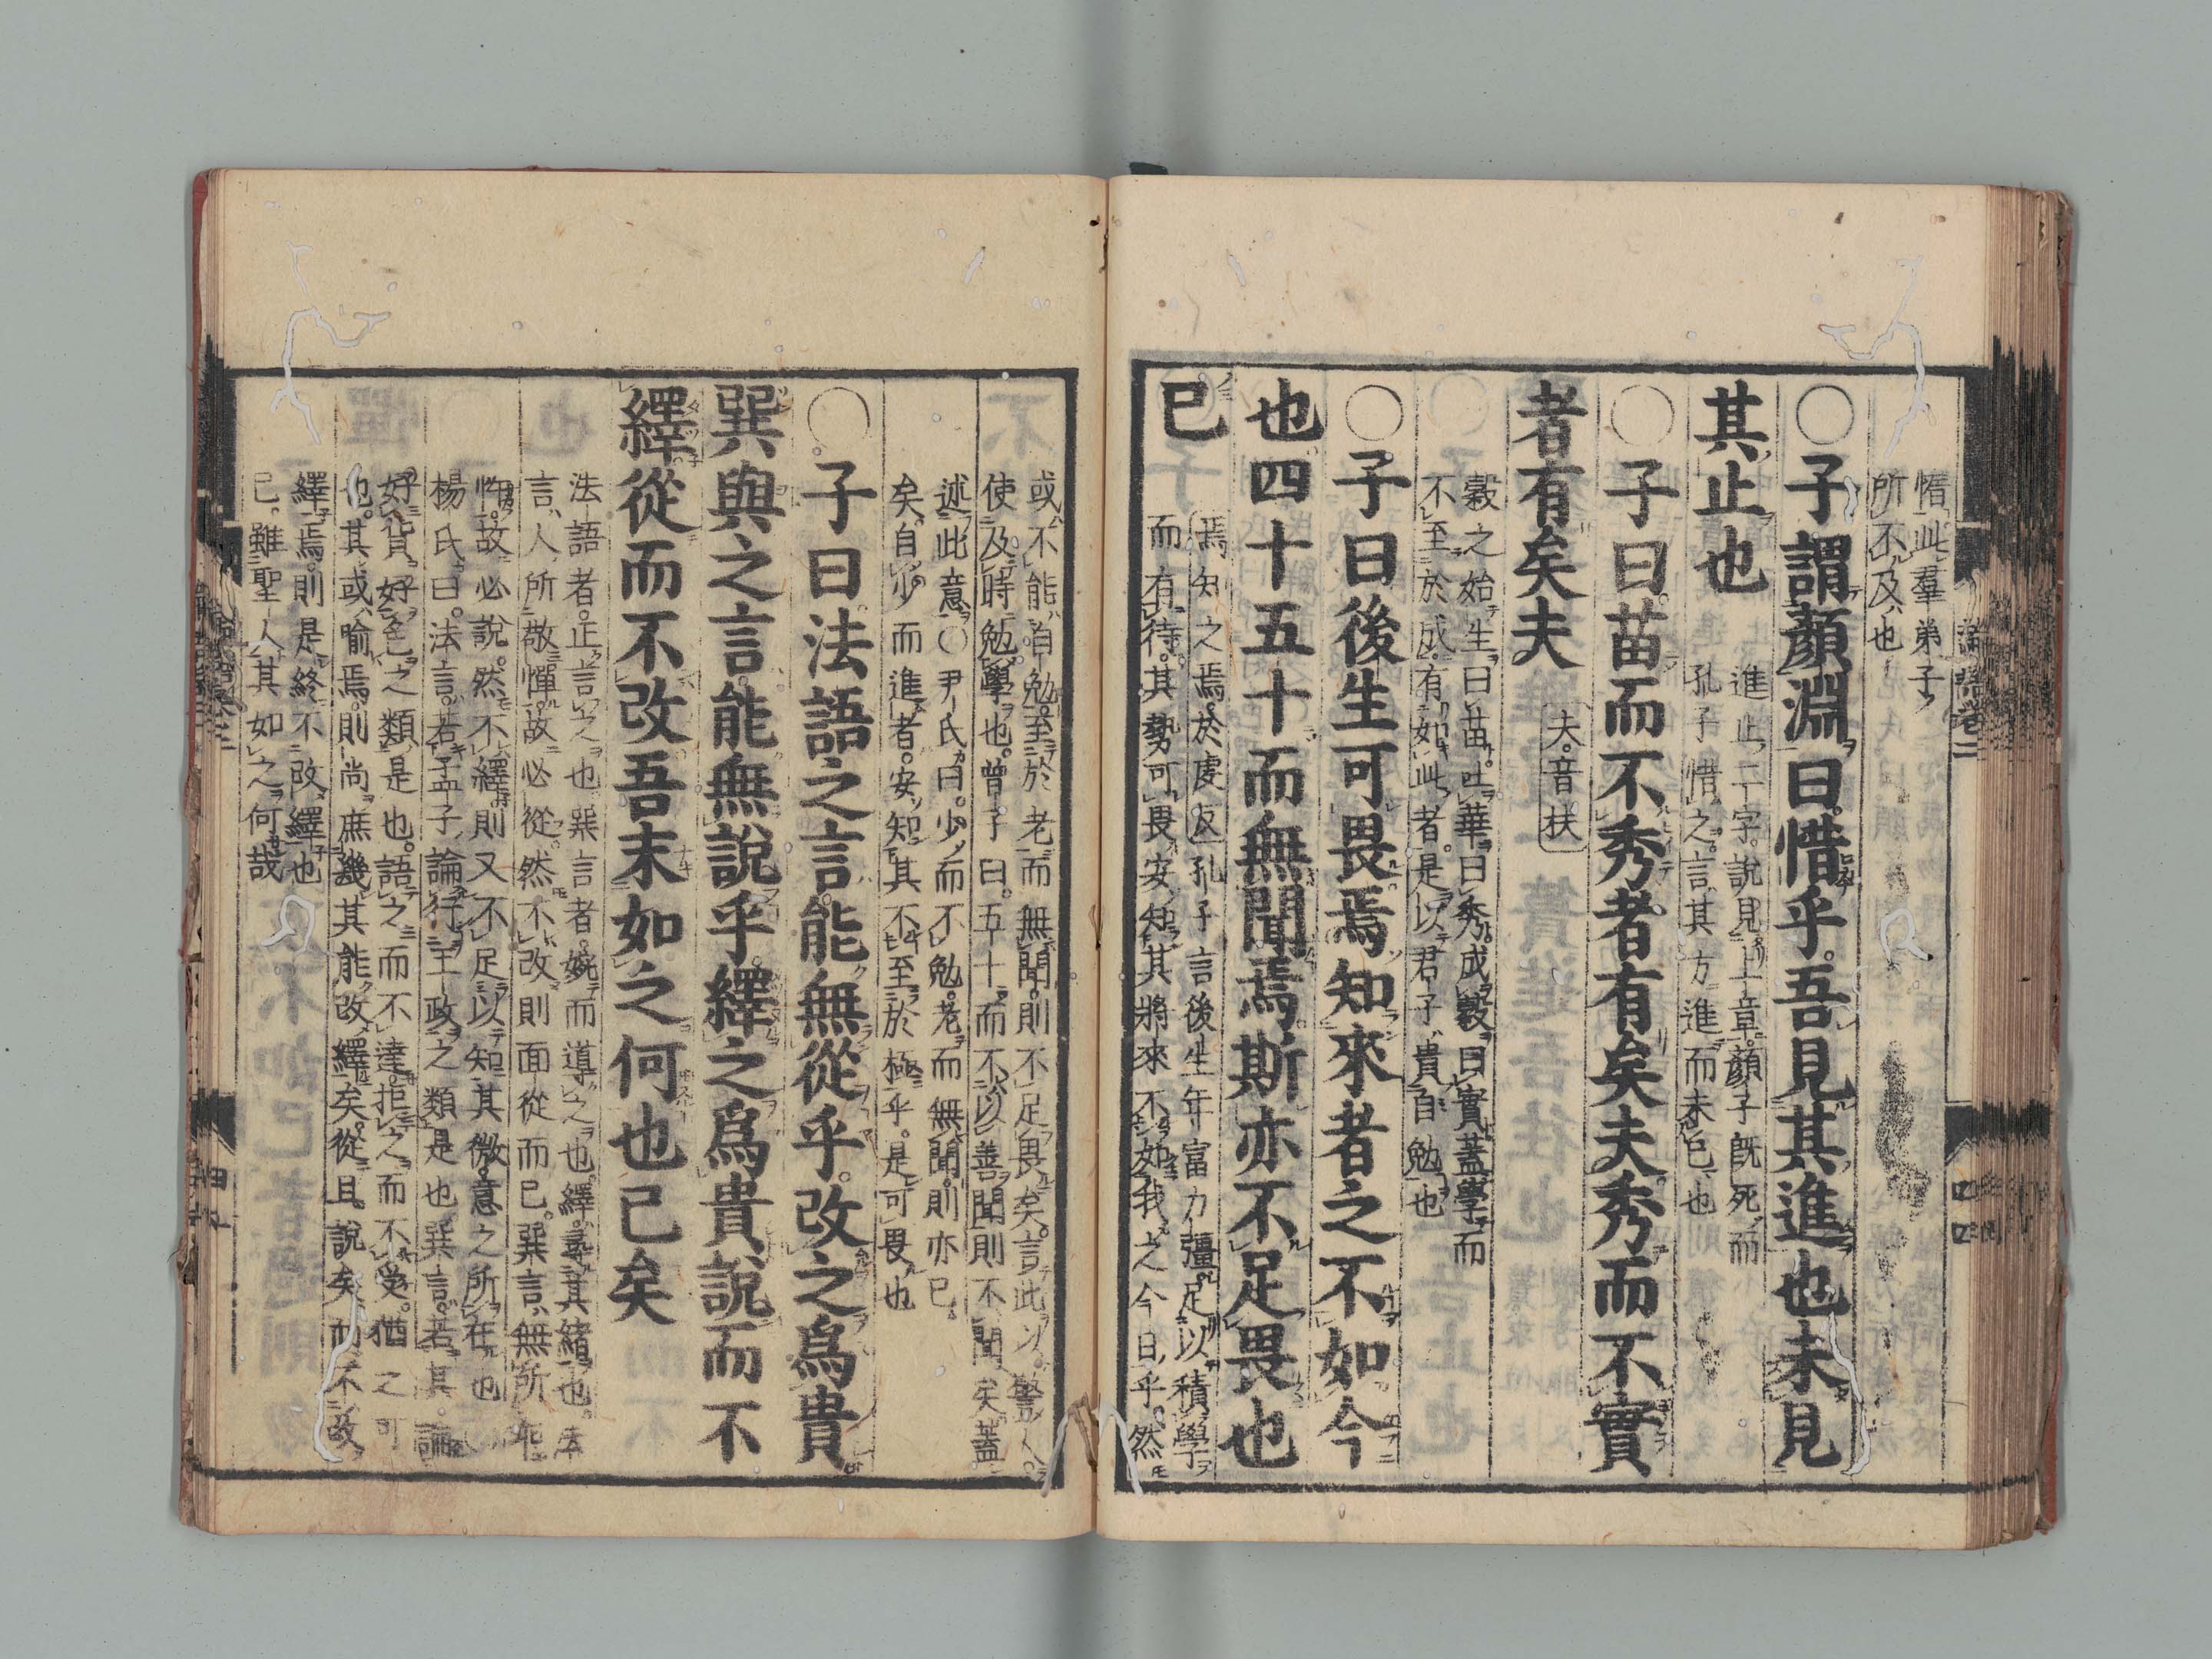 惰此羣弟子
所不及也
〇子謂顏淵曰惜乎吾見其進也未見
其止也
進止二字說見上章顏子旣死而
孔子惜之言其方進而未已也
〇子曰苗而不秀者有矣夫秀而不實
者有矣夫
夫音扶
穀之始生曰苗吐華曰秀成穀曰實蓋學而
不至於成有如此者是以君子貴自勉也
〇子曰後生可畏焉知來者之不如今
也四十五十而無聞焉斯亦不足畏也
已
焉知之焉於虔反孔子言後生年富力彊足以積學
而有待其勢可畏安知其將來不如我之今日乎然
或不能自勉至於老而無聞則不足畏矣言此以警人
使及時勉學也曾子曰五十而不以善聞則不聞矣蓋
述此意〇尹氏曰少而不勉老而無聞則亦已
矣自少而進者安知其不至於極乎是可畏也
〇子曰法語之言能無從乎改之爲貴
巽與之言能無說乎繹之爲貴說而不
繹從而不改吾末如之何也已矣
法語者正言之也巽言者婉而導之也繹尋其緖也法
言人所敬憚故必從然不改則面從而已巽言無所乖
忤故必說然不繹則又不足以知其微意之所在也
楊氏曰法言若孟子論行王政之類是也巽言若其論
好貨好色之類是也語之而不達拒之而不受猶之可
也其或喻焉則尚庶幾其能改繹矣從且說矣而不改
繹焉則是終不改繹也
已雖聖人其如之何哉